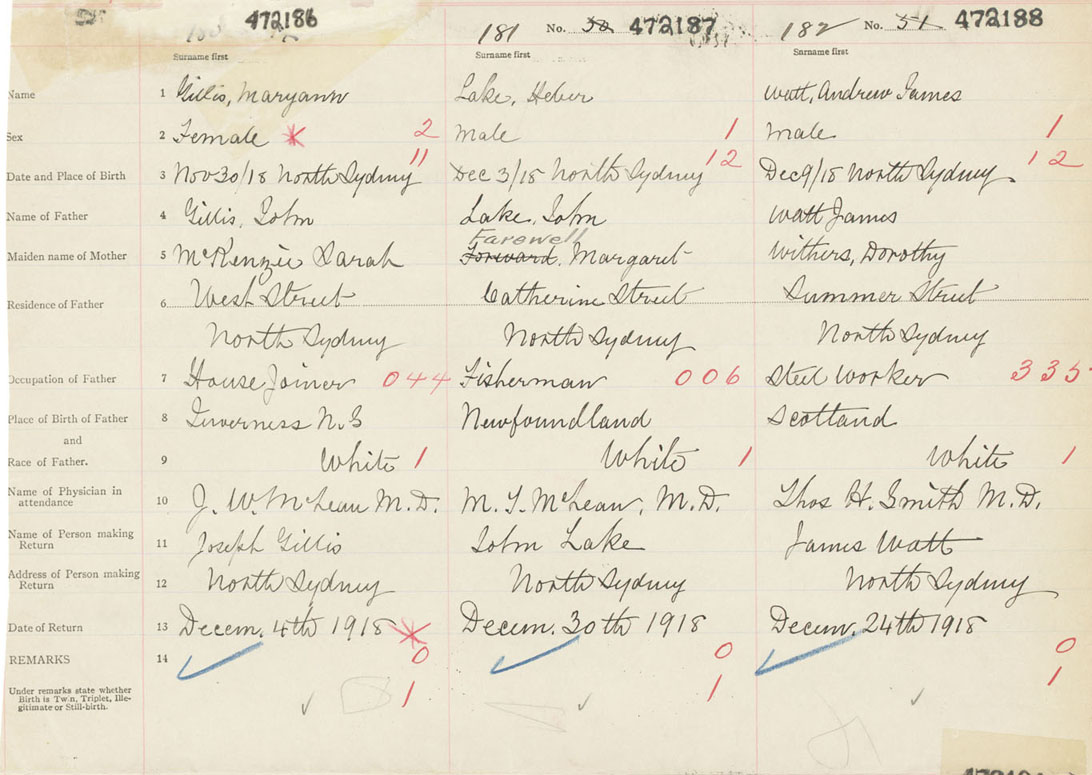 472186
181 No. 472187
182 No. 51 472188
Surname first Surname first Surname first
Name 1 Gillis, Maryann Lake, Heber Watt, Andrew James
Sex 2 Female * 2 Male 1 Male 1
11 12 12
Date and Place of Birth 3 Nov 30/18 North Sydney Dec 3/18 North Sydney Dec 9/18 North Sydney
Name of Father 4 Gillis, John Lake, John Watt James
Farewell
Maiden name of Mother 5 McKenzie Sarah Forward, Margaret Withers, Dorothy
Residence of Father 6 West Street Catherine Street Summer Street
North Sydney North Sydney North Sydney
Occupation of Father 7 House Joiner 044 Fisherman 006 Steel Worker 335
Place of Birth of Father 8 Inverness N.S Newfoundland Scotland
and
Race of Father. 9 White 1 White 1 White 1
Name of Physician in
attendance 10 J. W. McLean M.D. M. T. McLean, M.D. Thos H. Smith M.D.
Name of Person making
Return 11 Joseph Gillis John Lake James Watt
Address of Person making
Return 12 North Sydney North Sydney North Sydney
Date of Return 13 Decem. 4th 1918 * Decem. 30th 1918 Decem. 24th 1918
REMARKS 14 0 0 0
Under remarks state whether
Birth is Twin, Triplet, Ille-
gitimate or Still-birth.
1 1 1